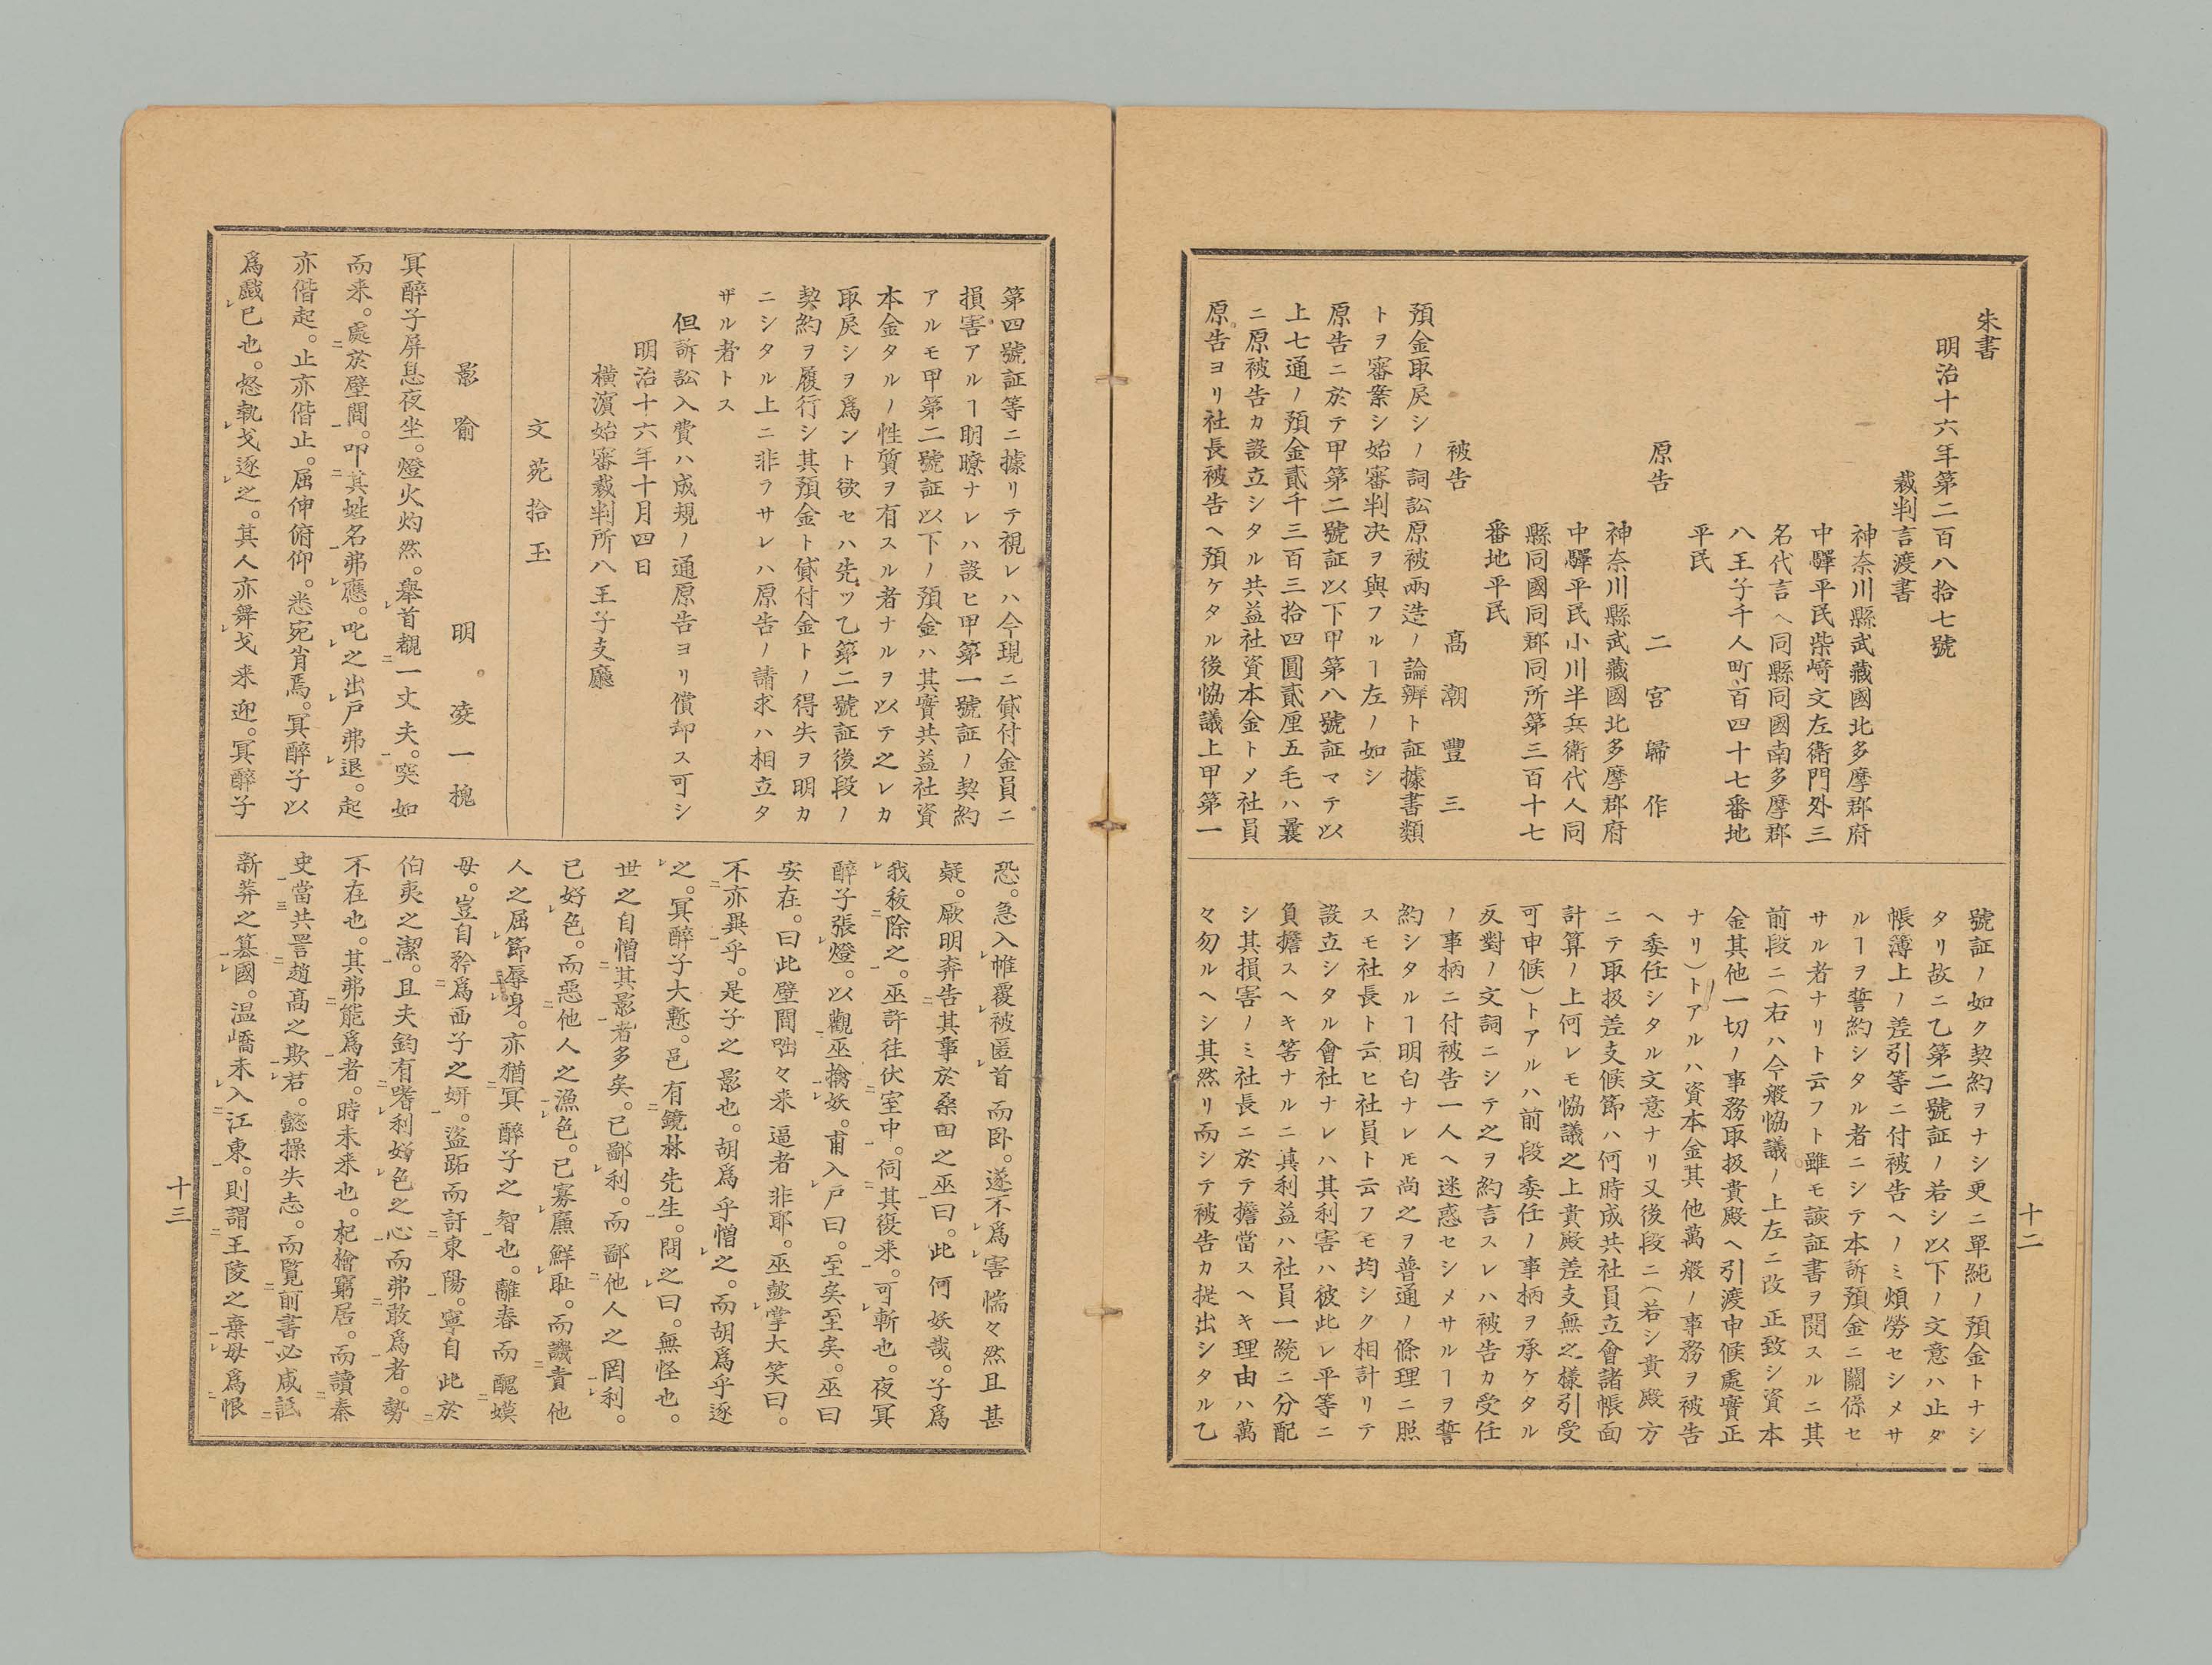 朱書
明治十六年第二百八拾七號
裁判言渡書
神奈川縣武藏國北多摩郡府
中驛平民柴﨑文左衛門外三
名代言人同縣同國南多摩郡
八王子千人町百四十七番地
平民
原告　二宮歸作
神奈川縣武藏國北多摩郡府
中驛平民小川半兵衛代人同
縣同國同郡同所第三百十七
番地平民
被告　髙潮豐三
預金取戻シノ詞訟原被兩造ノ論辨ト証據書類
トヲ審案シ始審判决ヲ與フルヿ左ノ如シ
原告ニ於テ甲第二號証以下甲第八號証マテ以
上七通ノ預金貳千三百三拾四圓貳厘五毛ハ曩
ニ原被告カ設立シタル共益社資本金トメ社員
原告ヨリ社長被告ヘ預ケタル後恊議上甲第一
號証ノ如ク契約ヲナシ更ニ單純ノ預金トナシ
タリ故ニ乙第二號証ノ若シ以下ノ文意ハ止ダ
帳簿上ノ差引等ニ付被告ヘノミ煩勞セシメサ
ルヿヲ誓約シタル者ニシテ本訴預金ニ關係セ
サル者ナリト云フト雖モ該証書ヲ閲スルニ其
前段ニ（右ハ今般恊議ノ上左ニ改正致シ資本
金其他一切ノ事務取扱貴殿ヘ引渡申候處實正
ナリ）トアルハ資本金其他萬般ノ事務ヲ被告
ヘ委任シタル文意ナリ又後段ニ（若シ貴殿方
ニテ取扱差支候節ハ何時成共社員立會諸帳面
計算ノ上何レモ恊議之上貴殿差支無之樣引受
可申候）トアルハ前段委任ノ事柄ヲ承ケタル
反對ノ文詞ニシテ之ヲ約言スレハ被告カ受任
ノ事柄ニ付被告一人ヘ迷惑セシメサルヿヲ誓
約シタルヿ明白ナレ𪜈尚之ヲ普通ノ條理ニ照
スモ社長ト云ヒ社員ト云フモ均シク相計リテ
設立シタル會社ナレハ其利害ハ彼此レ平等ニ
負擔スヘキ筈ナルニ其利益ハ社員一統ニ分配
シ其損害ノミ社長ニ於テ擔當スヘキ理由ハ萬
々勿ルヘシ其然リ而シテ被告カ提出シタル乙
十二
第四號証等ニ據リテ視レハ今現ニ貸付金員ニ
損害アルヿ明瞭ナレハ設ヒ甲第一號証ノ契約
アルモ甲第二號証以下ノ預金ハ其實共益社資
本金タルノ性質ヲ有スル者ナルヲ以テ之レカ
取戻シヲ爲ント欲セハ先ツ乙第二號証後段ノ
契約ヲ履行シ其預金ト貸付金トノ得失ヲ明カ
ニシタル上ニ非ラサレハ原告ノ請求ハ相立タ
ザル者トス
但訴訟入費ハ成規ノ通原告ヨリ償却ス可シ
明治十六年十月四日
橫濱始審裁判所八王子支廳
文苑拾玉
影喩　明　凌一槐
冥醉子屏息夜坐。燈火灼然。擧レ首覩二一丈夫。突如
而来。處二於壁間一。叩二其姓名一弗レ應。叱レ之出レ戸弗レ退。起
亦偕起。止亦偕止。屈伸俯仰。悉宛肖焉。冥醉子以
爲レ戯已也。怒執レ戈逐レ之。其人亦舞レ戈来迎。冥醉子
恐。急入レ帷覆レ被匿レ首而卧。遂不レ爲レ害惴々然且甚
疑。厥明奔二告其事於桑田之巫一曰。此何妖哉。子爲
レ我秡二除之一。巫許往伏二室中一。伺二其復来一。可レ斬也。夜冥
醉子張レ燈。以觀二巫擒一レ妖。甫入レ戸曰。至矣至矣。巫曰
安在。曰此壁間咄々来逼者非耶。巫皷レ掌大笑曰。
不二亦異一乎。是子之影也。胡爲乎憎レ之。而胡爲乎逐
レ之。冥醉子大慙。邑有二鏡林先生一。問レ之曰。無怪也。
世之自憎二其影一者多矣。已鄙レ利。而鄙二他人之罔一レ利。
已好レ色。而惡二他人之漁一レ色。已寡レ廉鮮レ耻。而譏二責他
人之屈レ節辱一レ身。亦猶二冥醉子之智一也。離春而醜二嫫
母一。豈自矜爲二西子之妍一。盜跖而訏二東陽一。寧自此二於
伯夷之潔一。且夫鈞有二嗜レ利好レ色之心一而弗二敢爲一者。勢
不レ在也。其弗二能爲一者。時未レ来也。杞檜窮居。而讀二秦
史一當三共詈二趙髙之欺一レ君。懿操失志。而覽二前書一必咸詆二
新莽之簒一レ國。温嶠未レ入二江東一。則謂二王陵之棄一レ母爲レ恨
十三